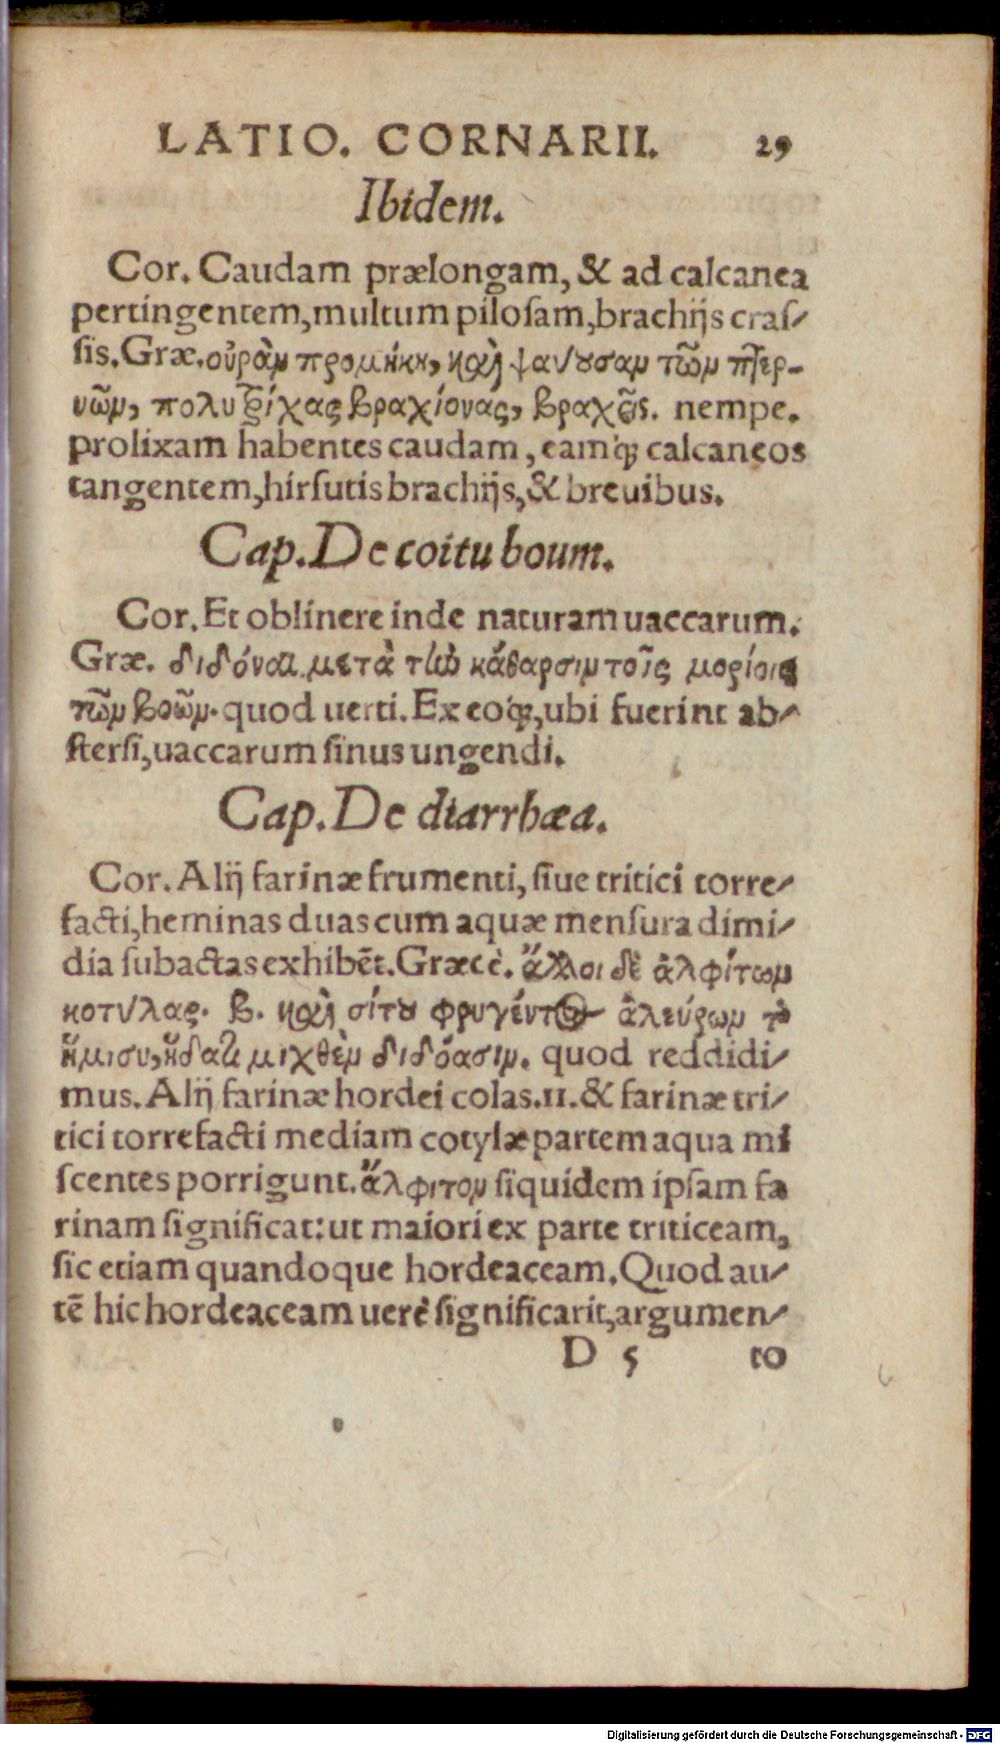 LATIO. CORNARII. 29
Ibidem.
Cor. Caudam prælongam, & ad calcanea
pertingentem, multum pilosam, brachijs cras-
sis. Græ. οὐρὰν προμήκη, καὶ ψαύουσαν τῶν πτερ-
νῶν, πολυτρίχας βραχίονας, βραχεῖς. nempe.
prolixam habentes caudam, eamq́; calcaneos
tangentem, hirsutis brachijs, & breuibus.
Cap. De coitu boum.
Cor. Et oblinere inde naturam uaccarum.
Græ. διδόναι μετὰ τὴν κάθαρσιν τοῖς μορίοις
τῶν βοῶν. quod uerti. Ex eoq́;, ubi fuerint ab-
stersi, uaccarum sinus ungendi.
Cap. De diarrhæa.
Cor. Alij farinæ frumenti, siue tritici torre-
facti, heminas duas cum aquæ mensura dimi-
dia subactas exhibēt. Græcè. ἄλλοι δὲ ἀλφίτων
κοτύλας. β. καὶ σίτου φρυγέντος ἀλεύρων τὸ
ἥμισυ, ὕδατι μιχθὲν διδόασιν. quod reddidi-
mus. Alij farinæ hordei colas. II. & farinæ tri-
tici torrefacti mediam cotylæ partem aqua mi
scentes porrigunt. ἄλφιτον siquidem ipsam fa
rinam significat: ut maiori ex parte triticeam,
sic etiam quandoque hordeaceam. Quod au-
tē hic hordeaceam uerè significarit, argumen-
D 5 to
Digitalisierung gefördert durch die Deutsche Forschungsgemeinschaft - DFG